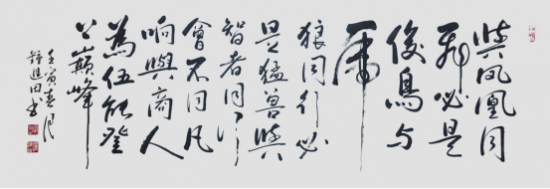 與鳳凰同
飛必是
俊鳥与
虎
狼同行必
是猛獸與
智者同行
會不同凡
响與商人
為伍能登
上巔峰
壬寅春月
進田书